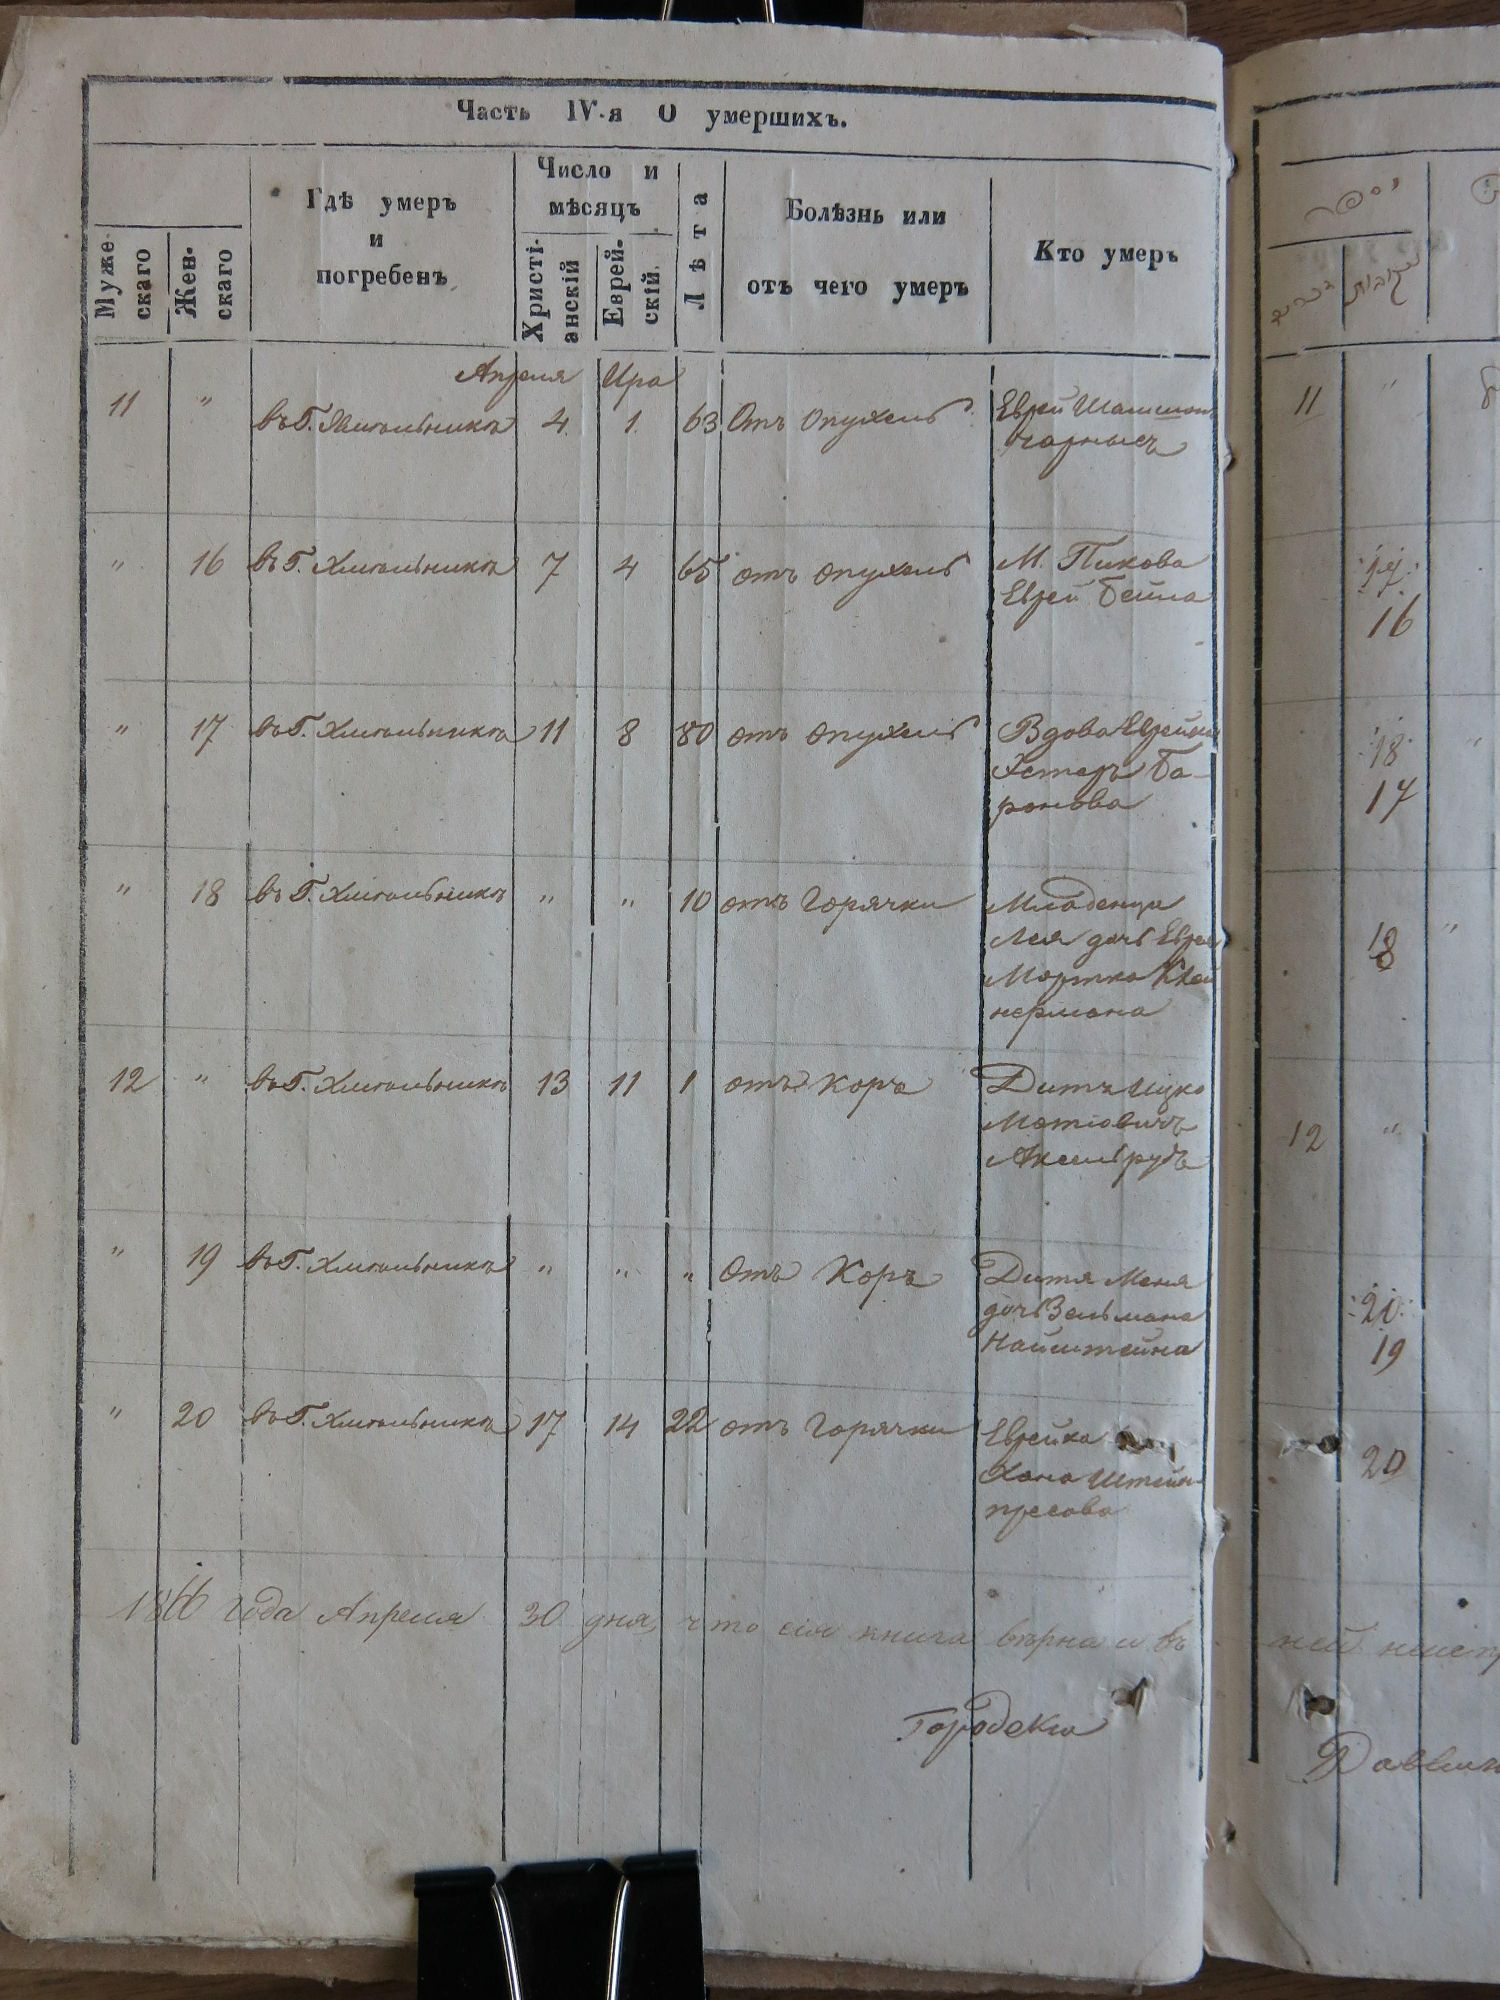 Часть IV-я О умершихъ.
Муже-
скаго
Жен-
скаго
Гдѣ умеръ
и
погребенъ
Число и
мѣсяцъ
Христі-
анскій
Еврей-
скій
Лѣта
Болѣзнь или
отъ чего умеръ
Кто умеръ
Апреля Ира
11 " въ Г. Хмѣльникѣ 4 1 63 Отъ опухель Еврей Шамшон
чарнысъ
" 16 въ Г. Хмѣльникѣ 7 4 65 отъ опухель М. Пикова
Еврей Бейла
" 17 въ Г. Хмѣльникѣ 11 8 80 отъ опухель Вдова Еврейка
Эстеръ Ба-
ронова
" 18 въ Г. Хмѣльникѣ " " 10 отъ горячки Младенца
Лея дочь Еврея
Мортка Клей
нермана
12 " въ Г. Хмѣльникѣ 13 11 1 отъ коръ Дитя Ицко
Мотіовичъ
Аксельрудъ
" 19 въ Г. Хмѣльникѣ " " " Отъ Коръ Дитя Меня
дочь Зельмана
Найштейна
" 20 въ Г. Хмѣльникѣ 17 14 22 отъ горячки Еврейка
Хана Штейн
пресова
1866 года Апреля 30 дня, что сія книга вѣрна и въ ней
Городекій
11 "
17
16
18
17
18 "
12 "
20
19
20